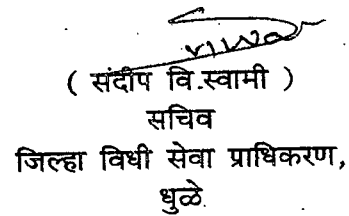 ( संदीप वि.स्वामी )
सचिव
जिल्हा विधी सेवा प्राधिकरण,
धुळे.